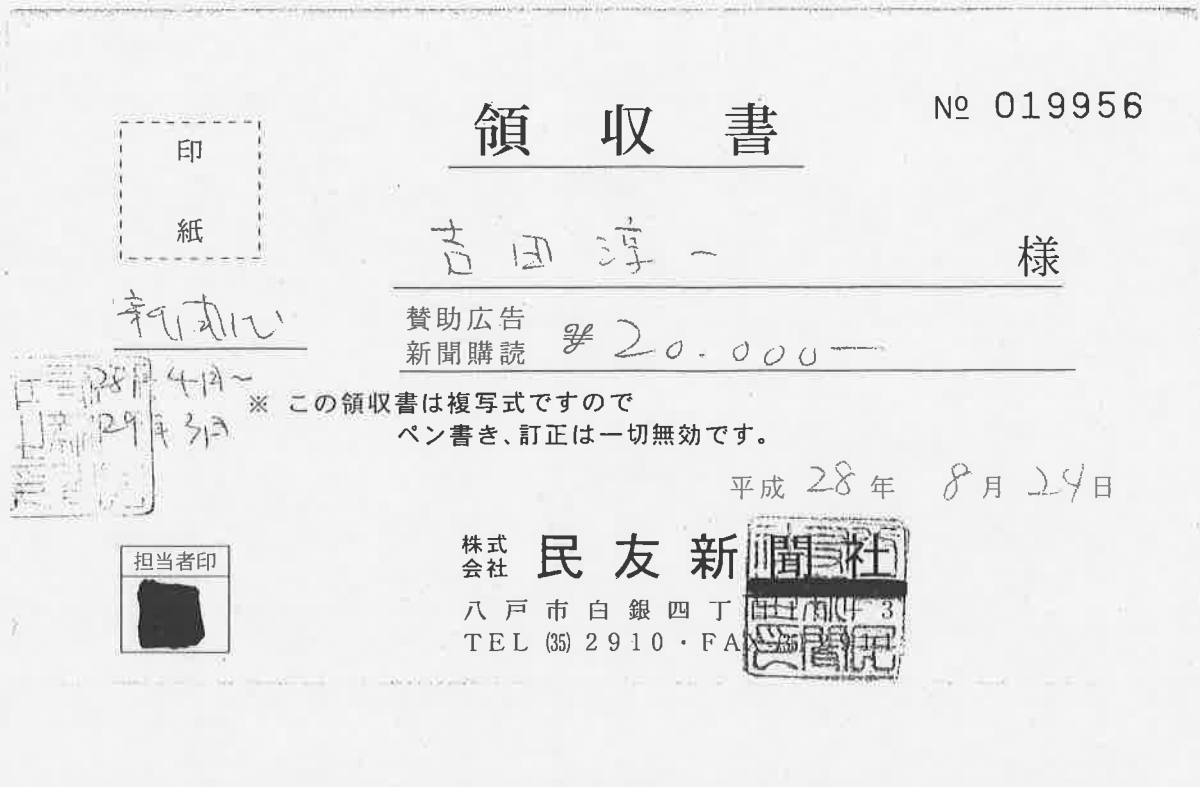 領収書
№ 019956
印
紙
吉田淳一 様
新聞代
賛助広告
新聞購読
¥20.000-
28年4月~
29年3月
※ この領収書は複写式ですので
ペン書き、訂正は一切無効です。
平成28年 8月24日
株式
会社
民友新聞社
八戸市白銀四丁
TEL (35) 2910・FAX (35)
担当者印